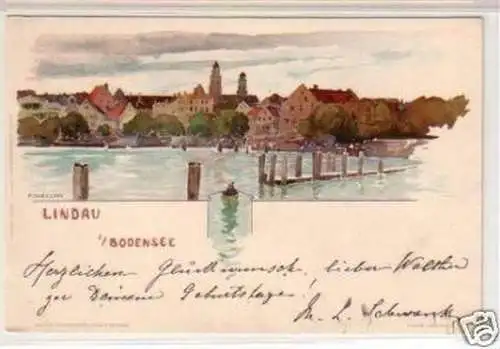 LINDAU
a/ BODENSEE
Herzlichen Glückwunsch, lieber Walther
zu Deinem Geburtstage!
M. L. Schwarck
ebY